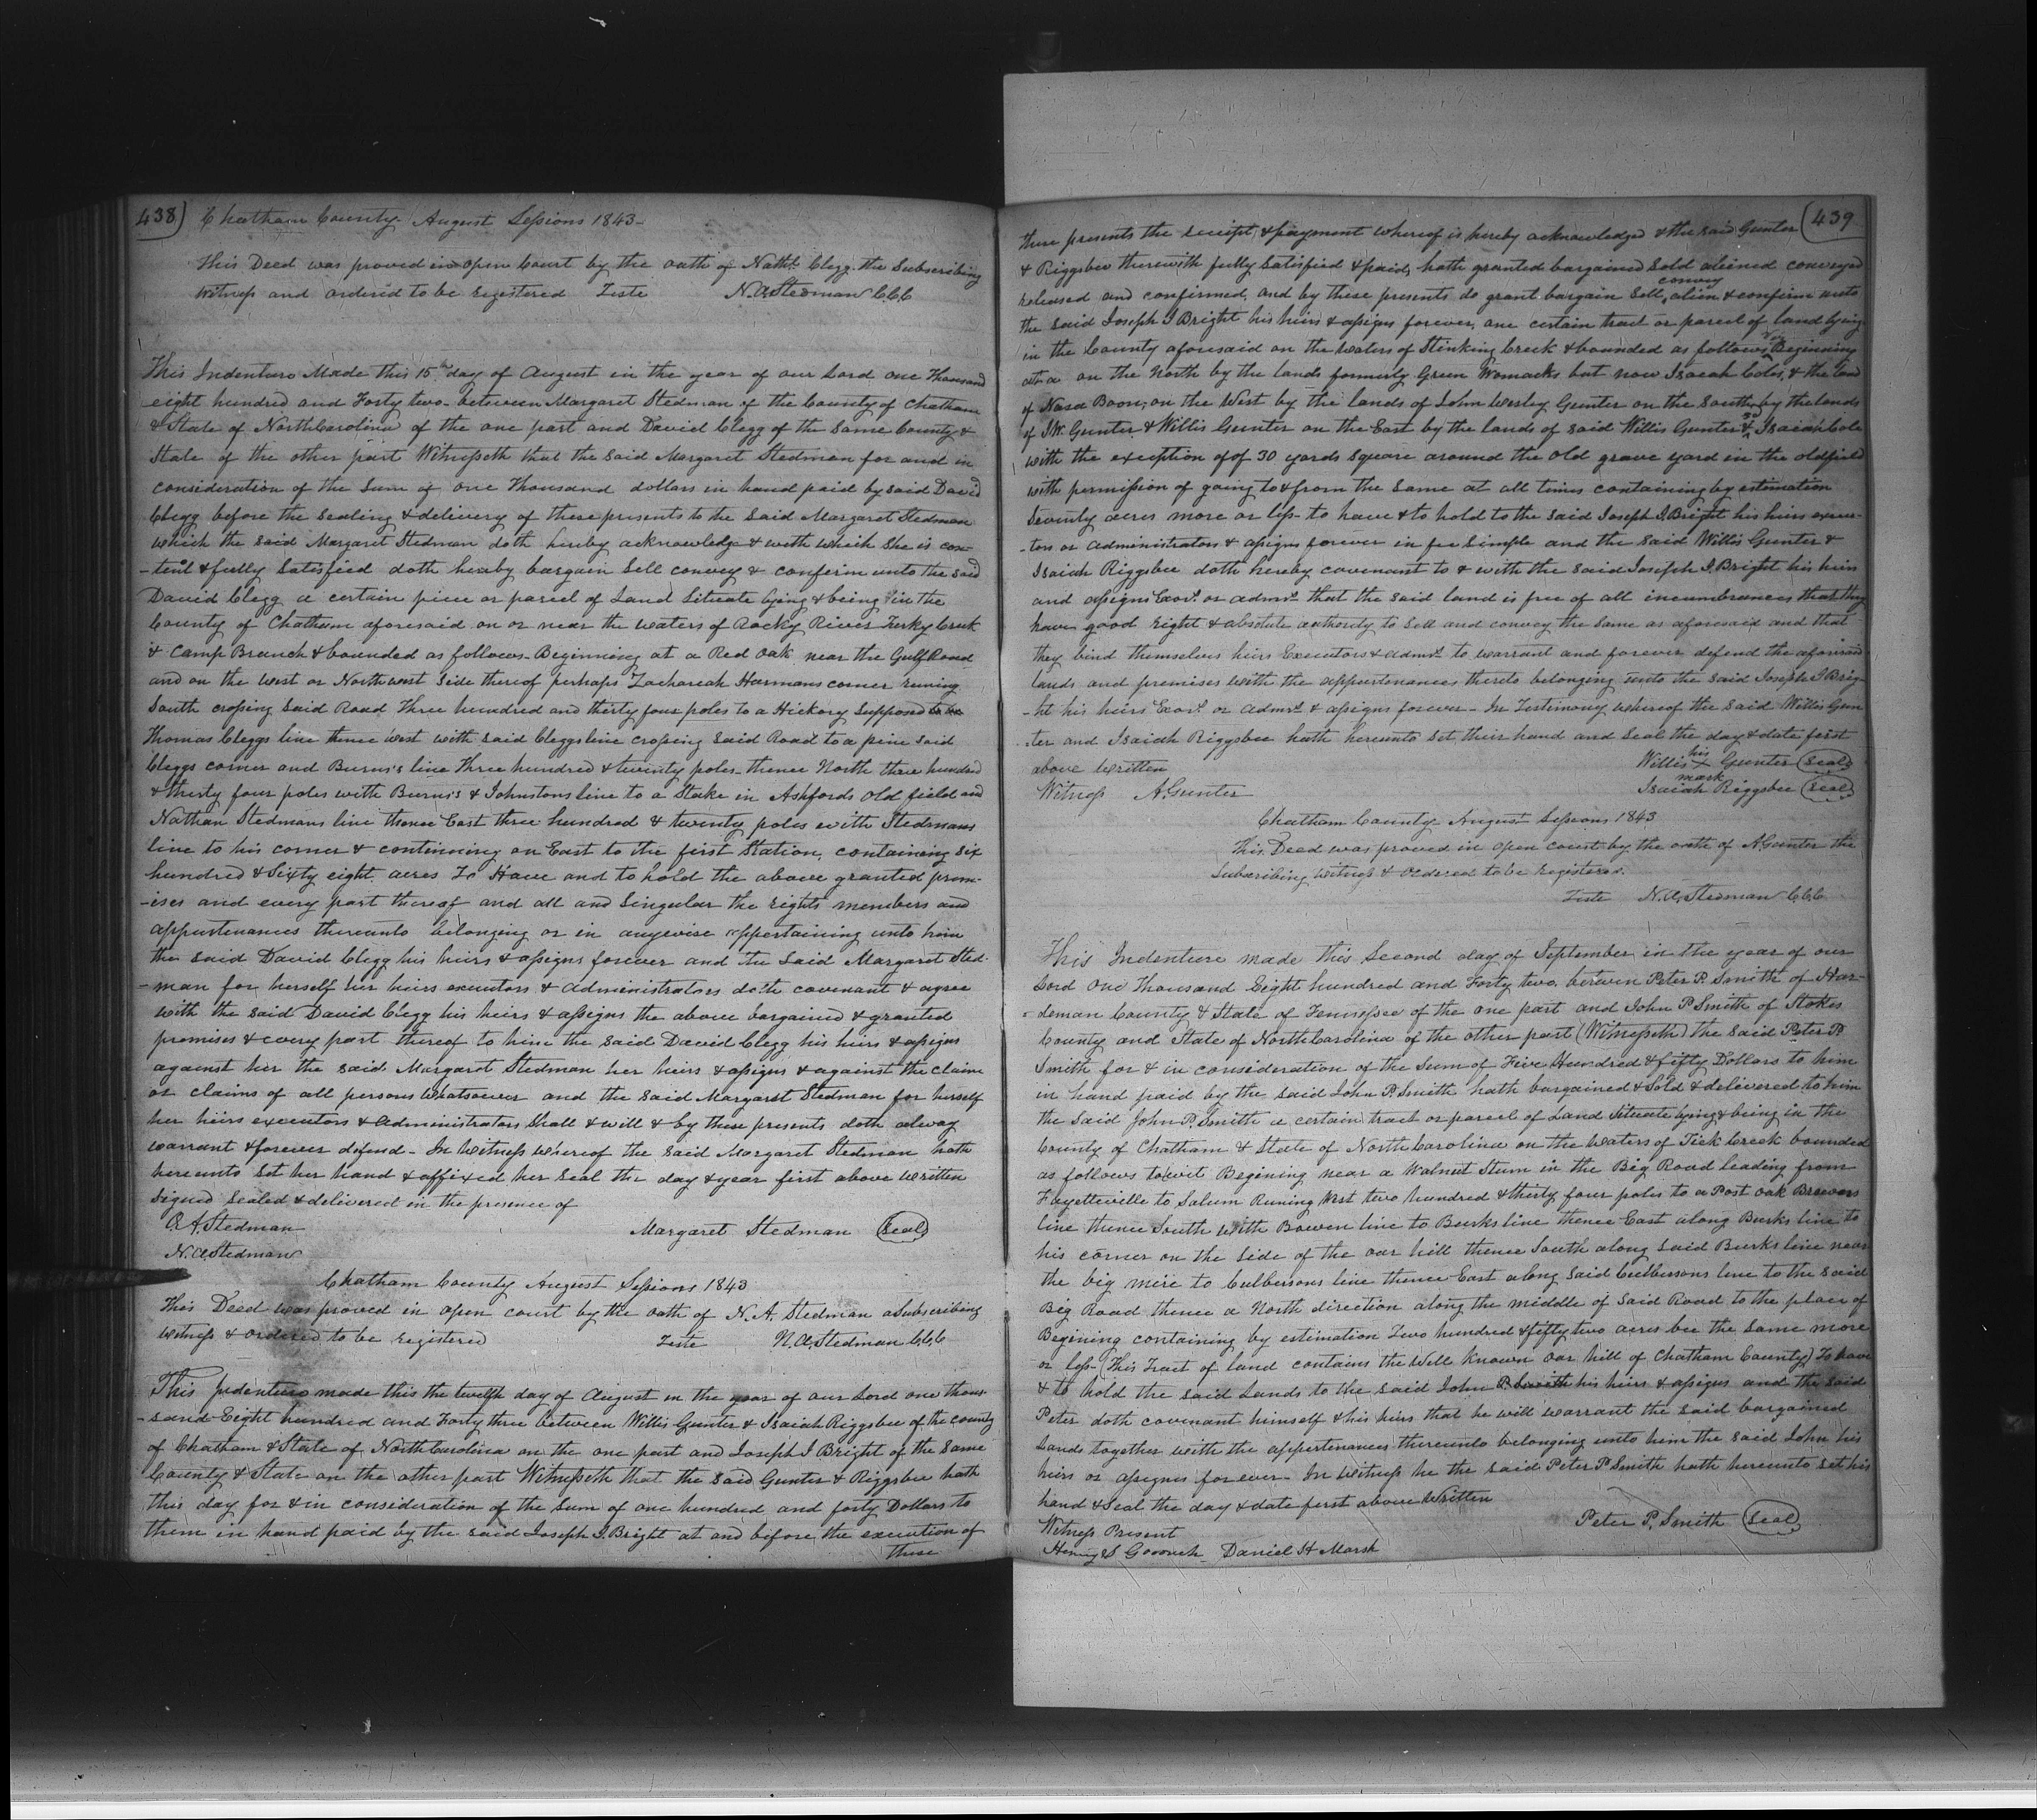 438) Chatham County August Sessions 1843
This Deed was proved in open Court by the oath of Nathl. Clegg the Subscribing
Witness and ordered to be registered Teste N.A. Stedman C.C.C
This Indenture Made this 15th day of August in the year of our Lord one Thousand
eight hundred and Forty two between Margaret Stedman of the County of Chatham
& State of North Carolina of the one part and David Clegg of the same County &
State of the other part Witnesseth that the said Margaret Stedman for and in
consideration of the Sum of one Thousand dollars in hand paid by said David
Clegg before the sealing & delivery of these presents to the said Margaret Stedman
which the said Margaret Stedman doth hereby acknowledge & with which She is con-
-tent & fully Satisfied doth hereby bargain Sell convey & confirm unto the said
David Clegg a certain piece or parcel of Land Situate lying & being in the
County of Chatham aforesaid on or near the waters of Rocky River Turky Creek
& Camp Branch & bounded as follows Beginning at a Red Oak near the Gulf Road
and on the west or North west side thereof perhaps Zachareah Harmans corner runing
South crossing said Road Three hundred and thirty four poles to a Hickory Supposed
Thomas Cleggs line thence west with said Cleggs line crossing said Road to a pine said
Cleggs corner and Burns's line Three hundred & twenty poles thence North three hundred
& thirty four poles with Burns's & Johnstons line to a Stake in Ashfords old field and
Nathan Stedmans line thence East three hundred & twenty poles with Stedmans
line to his corner & continuing on East to the first Station, containing Six
hundred & Sixty eight acres To Have and to hold the above granted prem-
-ises and every part thereof and all and Singular the rights members and
appurtenances thereunto belonging or in anywise appertaining unto him
the said David Clegg his heirs & assigns forever and the said Margaret Sted-
-man for herself her heirs executors & administrators doth covenant & agree
with the said David Clegg his heirs & assigns the above bargained & granted
premises & every part thereof to him the said David Clegg his heirs & assigns
against her the said Margaret Stedman her heirs & assigns & against the claim
or claims of all persons Whatsoever and the said Margaret Stedman for herself
her heirs executors & administrators Shall & will & by these presents doth alway
warrant & forever defend - In Witness Whereof the said Margaret Stedman hath
hereunto set her hand & affixed her seal the day & year first above written
Signed Sealed & delivered in the presence of
Stedman
Margaret Stedman (Seal)
N.A. Stedman
Chatham County August Sessions 1843
This Deed was proved in open court by the oath of N. A. Stedman a Subscribing
Witness & ordered to be registered Teste N.A. Stedman C.C.C
This Indenture made this the twelfth day of August in the year of our Lord one thou-
-sand Eight hundred and Forty three between Willis Gunter & Isaiah Riggsbee of the county
of Chatham & State of North Carolina on the one part and Joseph J Bright of the same
County & State on the other part Witnesseth that the said Gunter & Riggsbee hath
this day for & in consideration of the Sum of one hundred and forty Dollars to
them in hand paid by the said Joseph J. Bright at and before the execution of
these
(439
these presents the receipt & payment whereof is hereby acknowledged & the said Gunter
& Riggsbee therewith fully Satisfied & paid, hath granted bargained Sold aliened conveyed
released and confirmed, and by these presents do grant bargain Sell, convey alien & confirm unto
the said Joseph J Bright his heirs & assigns forever, one certain tract or parcel of land lying
in the County aforesaid on the waters of Stinking Creek & bounded as follows Viz Beginning
at a on the North by the lands formerly Green Womacks but now Isaiah Coles, & the land
of Nasa Boon, on the West by the lands of John Wesley Gunter on the South by the lands
of J.W. Gunter & Willis Gunter on the East by the lands of said Willis Gunter & Isaiah Cole
with the exception of of 30 yards square around the old grave yard in the oldfield
with permission of going to & from the same at all times containing by estimation
Seventy acres more or less to have & to hold to the said Joseph J. Bright his heirs execu-
-tors or administrators & assigns forever in fee simple and the said Willis Gunter &
Isaiah Riggsbee doth hereby covenant to & with the said Joseph J. Bright his heirs
and assigns Exors. or admrs. that the said land is free of all incumbrances that they
have good right & absolute authority to Sell and convey the same as aforesaid and that
they bind themselves heirs Executors & admrs. to warrant and forever defend the aforesaid
lands and premises with the appurtenances thereto belonging unto the said Joseph J Brig-
-ht his heirs Exors. or admrs. & assigns forever - In Testimony whereof the said Willis Gun
-ter and Isaiah Riggsbee hath hereunto set their hand and seal the day & date first
above written Willis his X mark Gunter (Seal)
Witness A. Gunter Isaiah Riggsbee (Seal)
Chatham County August Sessions 1843
This Deed was proved in open court by the oath of A Gunter the
Subscribing witness & ordered to be registered.
Teste N.A. Stedman C.C.C
This Indenture made this Second day of September in the year of our
Lord One Thousand Eight hundred and Forty two, between Peter P. Smith of Har-
-deman County & State of Tennessee of the one part and John P Smith of Stokes
County and State of North Carolina of the other part (Witnesseth) the said Peter P.
Smith for & in consideration of the Sum of Five Hundred & fifty Dollars to him
in hand paid by the said John P. Smith hath bargained & Sold & delivered to him
the said John P. Smith a certain tract or parcel of Land Situate lying & being in the
County of Chatham & State of North Carolina on the waters of Tick Creek bounded
as follows towit Begining near a Walnut Stum in the Big Road leading from
Fayetteville to Salem Runing West two hundred & thirty four poles to a Post oak Brewers
line thence South with Bowen line to Burks line thence East along Burks line to
his corner on the side of the oar hill thence South along said Burks line near
the big mire to Culbersons line thence East along said Culbersons line to the said
Big Road thence a North direction along the middle of said Road to the place of
Begining containing by estimation Two hundred & fifty two acres bee the same more
or less (This Tract of land contains the Well Known oar hill of Chatham County) To have
& to hold the said Lands to the said John P. Smith his heirs & assigns and the said
Peter doth covenant himself & his heirs that he will warrant the said bargained
Lands together with the appertenances thereunto belonging unto him the said John his
heirs or assignes for ever - In witness he the said Peter P Smith hath hereunto set his
hand & Seal the day & date first above Written
Peter P. Smith (Seal)
Witness Present
Henry S Daniel H Marsh